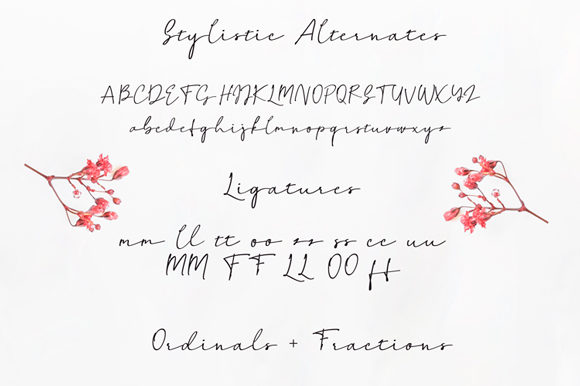 Stylistic Alternates
ABCDEFGHIJKLMNOPQRSTUVWXYZ
abcdefghijklmnopqrstuvwxyz
Ligatures
mm ll tt oo zz ss cc uu
MM FF LL OO ff
Ordinals + Fractions